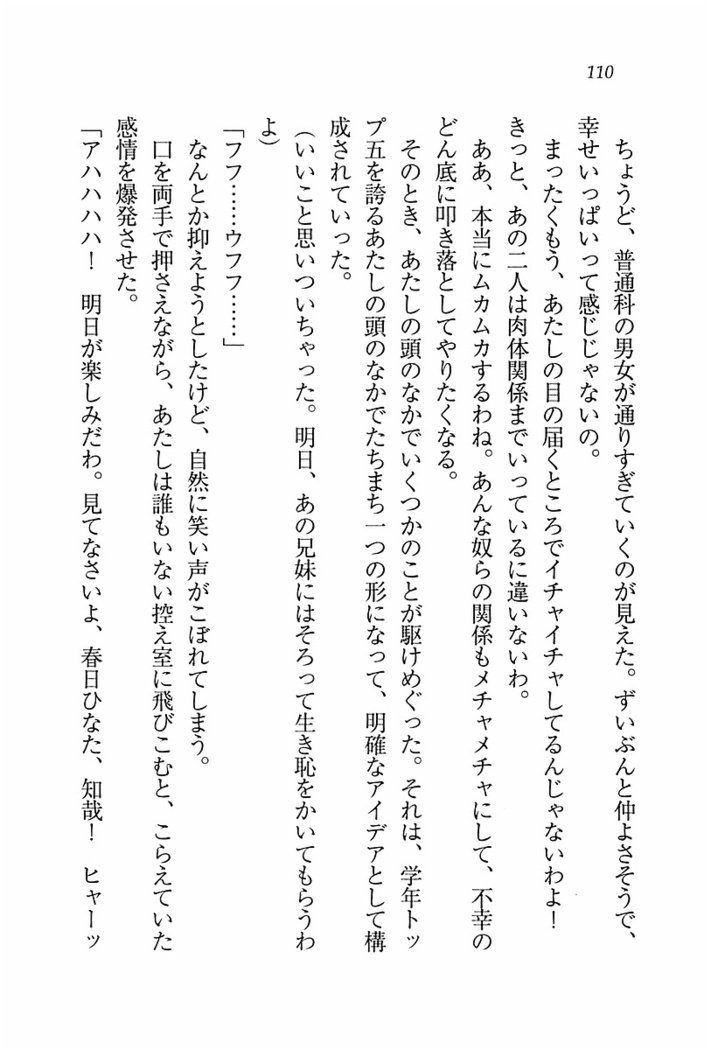 110
ちょうど、普通科の男女が通りすぎていくのが見えた。ずいぶんと仲よさそうで、
幸せいっぱいって感じじゃないの。
まったくもう、あたしの目の届くところでイチャイチャしてるんじゃないわよ！
きっと、あの二人は肉体関係までいっているに違いないわ。
ああ、本当にムカムカするわね。あんな奴らの関係もメチャメチャにして、不幸の
どん底に叩き落としてやりたくなる。
そのとき、あたしの頭のなかでいくつかのことが駆けめぐった。それは、学年トッ
プ五を誇るあたしの頭のなかでたちまち一つの形になって、明確なアイデアとして構
成されていった。
（いいこと思いついちゃった。明日、あの兄妹にはそろって生き恥をかいてもらうわ
よ）
「フフ……ウフフ……」
なんとか抑えようとしたけど、自然に笑い声がこぼれてしまう。
口を両手で押さえながら、あたしは誰もいない控え室に飛びこむと、こらえていた
感情を爆発させた。
「アハハハハ！　明日が楽しみだわ。見てなさいよ、春日ひなた、知哉！　ヒャーッ